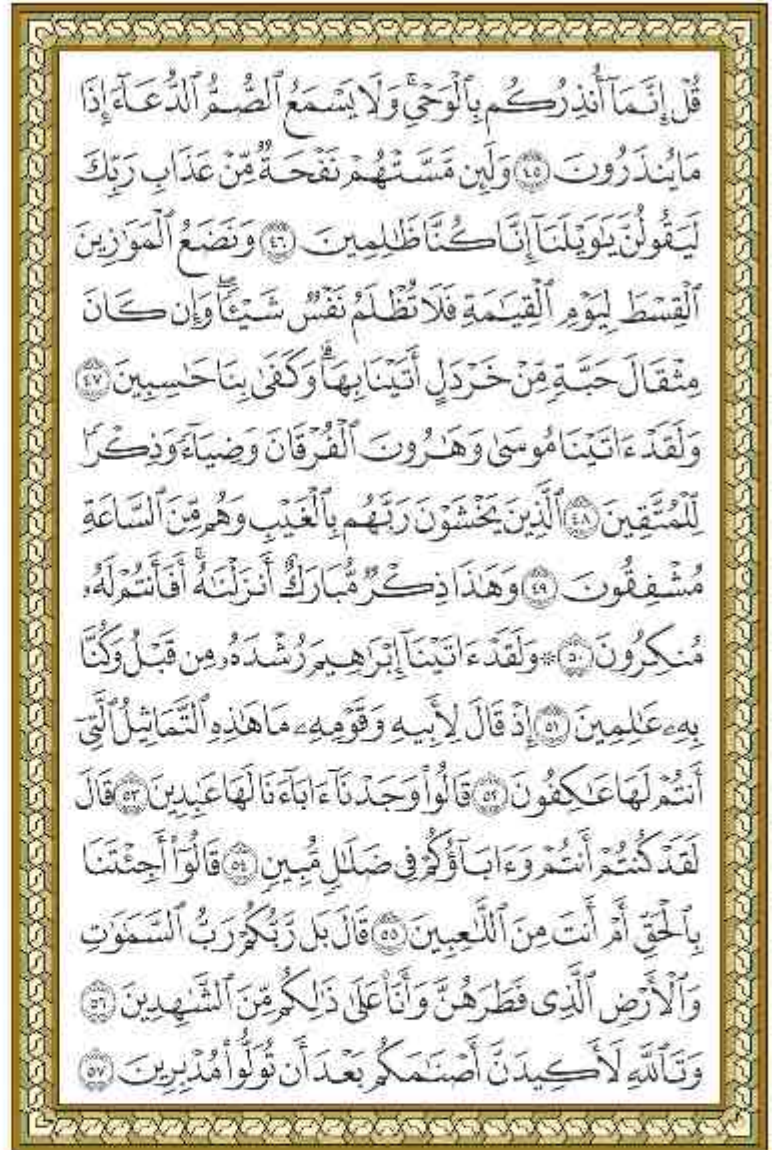 قُلْ إِنَّمَآ أُنذِرُكُم بِٱلْوَحْيِ ۚ وَلَا يَسْمَعُ ٱلصُّمُّ ٱلدُّعَآءَ إِذَا
مَا يُنذَرُونَ ٤٥ وَلَئِن مَّسَّتْهُمْ نَفْحَةٌ مِّنْ عَذَابِ رَبِّكَ
لَيَقُولُنَّ يَٰوَيْلَنَآ إِنَّا كُنَّا ظَٰلِمِينَ ٤٦ وَنَضَعُ ٱلْمَوَٰزِينَ
ٱلْقِسْطَ لِيَوْمِ ٱلْقِيَٰمَةِ فَلَا تُظْلَمُ نَفْسٌ شَيْـًٔا ۖ وَإِن كَانَ
مِثْقَالَ حَبَّةٍ مِّنْ خَرْدَلٍ أَتَيْنَا بِهَا ۗ وَكَفَىٰ بِنَا حَٰسِبِينَ ٤٧
وَلَقَدْ ءَاتَيْنَا مُوسَىٰ وَهَٰرُونَ ٱلْفُرْقَانَ وَضِيَآءً وَذِكْرًا
لِّلْمُتَّقِينَ ٤٨ ٱلَّذِينَ يَخْشَوْنَ رَبَّهُم بِٱلْغَيْبِ وَهُم مِّنَ ٱلسَّاعَةِ
مُشْفِقُونَ ٤٩ وَهَٰذَا ذِكْرٌ مُّبَارَكٌ أَنزَلْنَٰهُ ۚ أَفَأَنتُمْ لَهُۥ
مُنكِرُونَ ٥٠ ۞ وَلَقَدْ ءَاتَيْنَآ إِبْرَٰهِيمَ رُشْدَهُۥ مِن قَبْلُ وَكُنَّا
بِهِۦ عَٰلِمِينَ ٥١ إِذْ قَالَ لِأَبِيهِ وَقَوْمِهِۦ مَا هَٰذِهِ ٱلتَّمَاثِيلُ ٱلَّتِىٓ
أَنتُمْ لَهَا عَٰكِفُونَ ٥٢ قَالُوا۟ وَجَدْنَآ ءَابَآءَنَا لَهَا عَٰبِدِينَ ٥٣ قَالَ
لَقَدْ كُنتُمْ أَنتُمْ وَءَابَآؤُكُمْ فِى ضَلَٰلٍ مُّبِينٍ ٥٤ قَالُوٓا۟ أَجِئْتَنَا
بِٱلْحَقِّ أَمْ أَنتَ مِنَ ٱللَّٰعِبِينَ ٥٥ قَالَ بَل رَّبُّكُمْ رَبُّ ٱلسَّمَٰوَٰتِ
وَٱلْأَرْضِ ٱلَّذِى فَطَرَهُنَّ وَأَنَا۠ عَلَىٰ ذَٰلِكُم مِّنَ ٱلشَّٰهِدِينَ ٥٦
وَتَٱللَّهِ لَأَكِيدَنَّ أَصْنَٰمَكُم بَعْدَ أَن تُوَلُّوا۟ مُدْبِرِينَ ٥٧